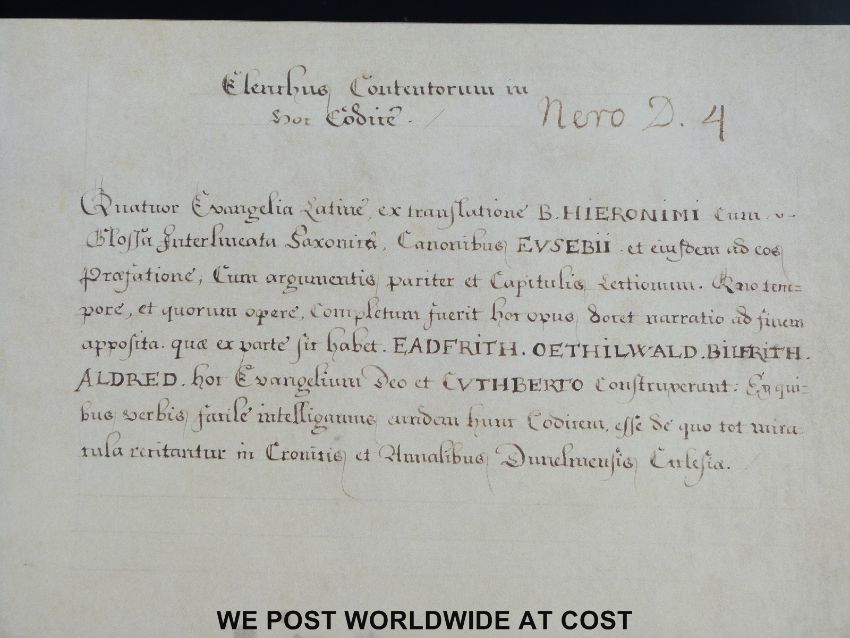 Elenchus Contentorum in
hoc Codice.
Nero D. 4
Quatuor Evangelia Latine, ex translatione B. HIERONIMI Cum
Glossa Interlineata Saxonica, Canonibus EVSEBII. et eiusdem ad eos
Præfatione, Cum argumentis pariter et Capitulis Lectionum. Quo tem=
pore, et quorum opere, Completum fuerit hoc opus, docet narratio ad finem
apposita. quæ ex parte sic habet. EADFRITH. OETHILWALD. BILFRITH.
ALDRED. hoc Evangelium Deo et CVTHBERTO Construxerunt: Ex qui=
bus verbis facile intelligamus eundem hunc Codicem, esse de quo tot mira=
cula recitantur in Cronicis et Annalibus Dunelmensis Ecclesiæ.
WE POST WORLDWIDE AT COST